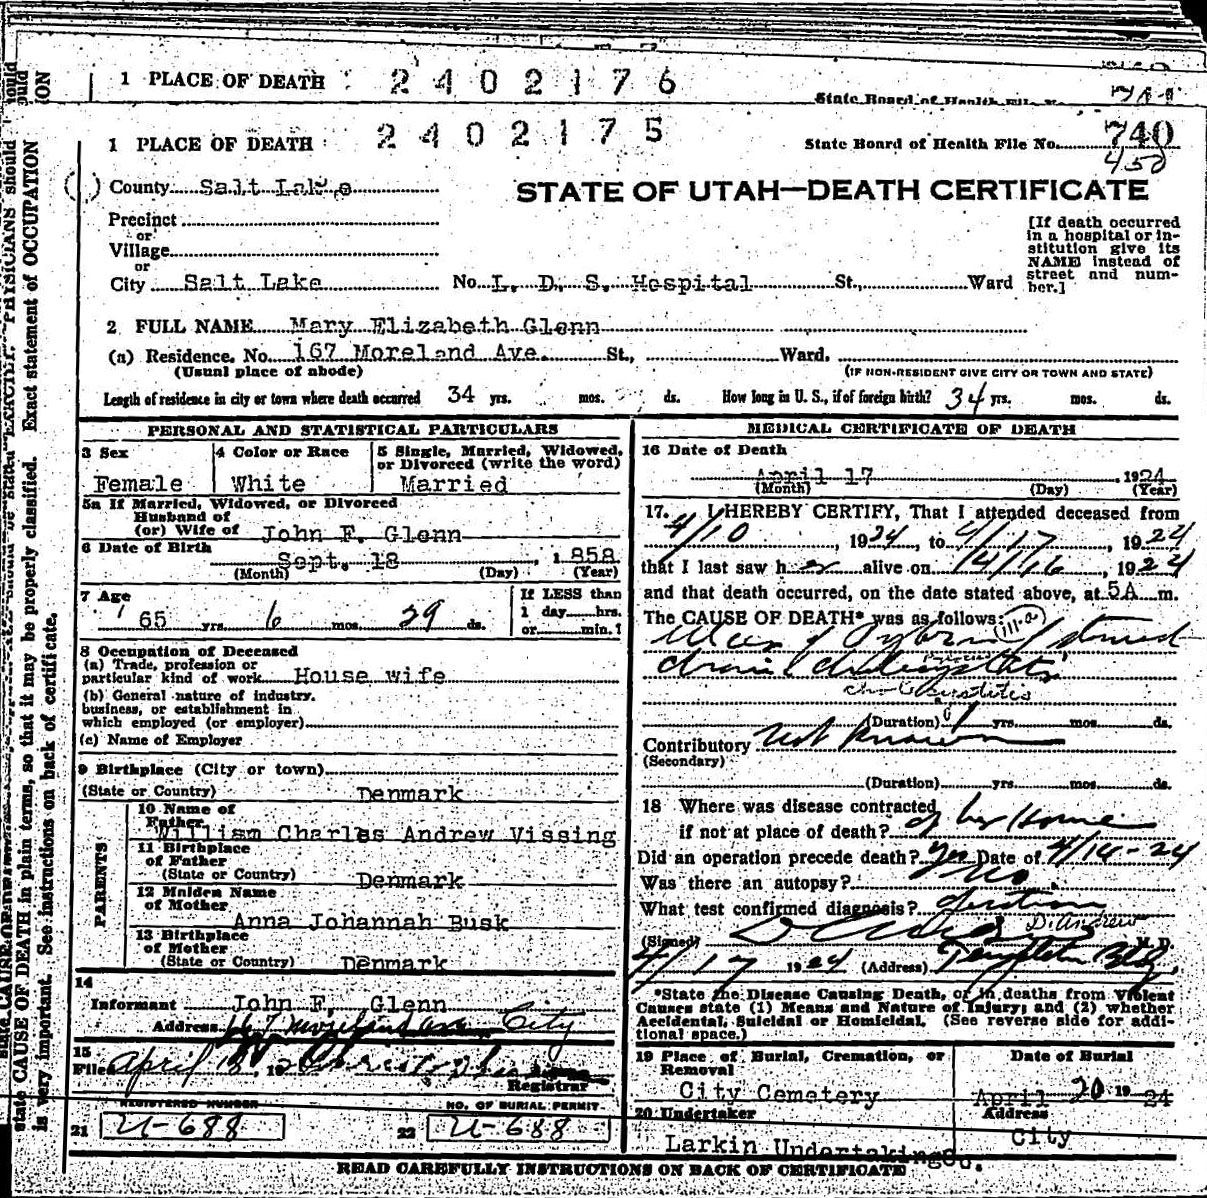 1 PLACE OF DEATH 2402176
State Board of Health File No.
1 PLACE OF DEATH 2402175 State Board of Health File No. 740
450
County Salt Lake STATE OF UTAH—DEATH CERTIFICATE
Precinct
or
Village
or
City Salt Lake No. L. D. S. Hospital St., Ward
[If death occurred
in a hospital or in-
stitution give its
NAME instead of
street and num-
ber.]
2 FULL NAME Mary Elizabeth Glenn
(a) Residence. No. 167 Moreland Ave. St., Ward.
(Usual place of abode) (IF NON-RESIDENT GIVE CITY OR TOWN AND STATE)
Length of residence in city or town where death occurred 34 yrs. mos. ds. How long in U. S., if of foreign birth? 34 yrs. mos. ds.
PERSONAL AND STATISTICAL PARTICULARS
3 Sex
Female
4 Color or Race
White
5 Single, Married, Widowed,
or Divorced (write the word)
Married
5a If Married, Widowed, or Divorced
Husband of
(or) Wife of John F. Glenn
6 Date of Birth
Sept. 18, 1858
(Month) (Day) (Year)
7 Age
65 yrs. 6 mos. 29 ds.
If LESS than
1 day hrs.
or min.?
8 Occupation of Deceased
(a) Trade, profession or
particular kind of work House wife
(b) General nature of industry,
business, or establishment in
which employed (or employer)
(c) Name of Employer
9 Birthplace (City or town)
(State or Country) Denmark
PARENTS
10 Name of
Father William Charles Andrew Vissing
11 Birthplace
of Father
(State or Country) Denmark
12 Maiden Name
of Mother
Anna Johannah Busk
13 Birthplace
of Mother
(State or Country) Denmark
14
Informant John F. Glenn
Address 167 Moreland Ave City
15
Filed April 18, 19
Registrar
REGISTERED NUMBER NO. OF BURIAL PERMIT
21 U-688 22 U-688
MEDICAL CERTIFICATE OF DEATH
16 Date of Death
April 17 1924
(Month) (Day) (Year)
17. I HEREBY CERTIFY, That I attended deceased from
4/10, 1924, to 4/17, 1924
that I last saw her alive on 4/16, 1924
and that death occurred, on the date stated above, at 5A m.
The CAUSE OF DEATH* was as follows: 111-a
Ulcer of
cholecystitis
(Duration) 1 yrs. mos. ds.
Contributory not known
(Secondary)
(Duration) yrs. mos. ds.
18 Where was disease contracted
if not at place of death? at her Home
Did an operation precede death? yes Date of 4/14-24
Was there an autopsy? no.
What test confirmed diagnosis?
D. Andrew
(Signed) M. D.
4/17 1924 (Address) Templeton Bldg.
*State the Disease Causing Death, or in deaths from Violent
Causes state (1) Means and Nature of Injury; and (2) whether
Accidental, Suicidal or Homicidal. (See reverse side for addi-
tional space.)
19 Place of Burial, Cremation, or
Removal
City Cemetery
Date of Burial
April 20 1924
20 Undertaker
Larkin Undertaking Co.
Address
City
READ CAREFULLY INSTRUCTIONS ON BACK OF CERTIFICATE
state CAUSE OF DEATH in plain terms, so that it may be properly classified. Exact statement of OCCUPATION
is very important. See instructions on back of certificate.